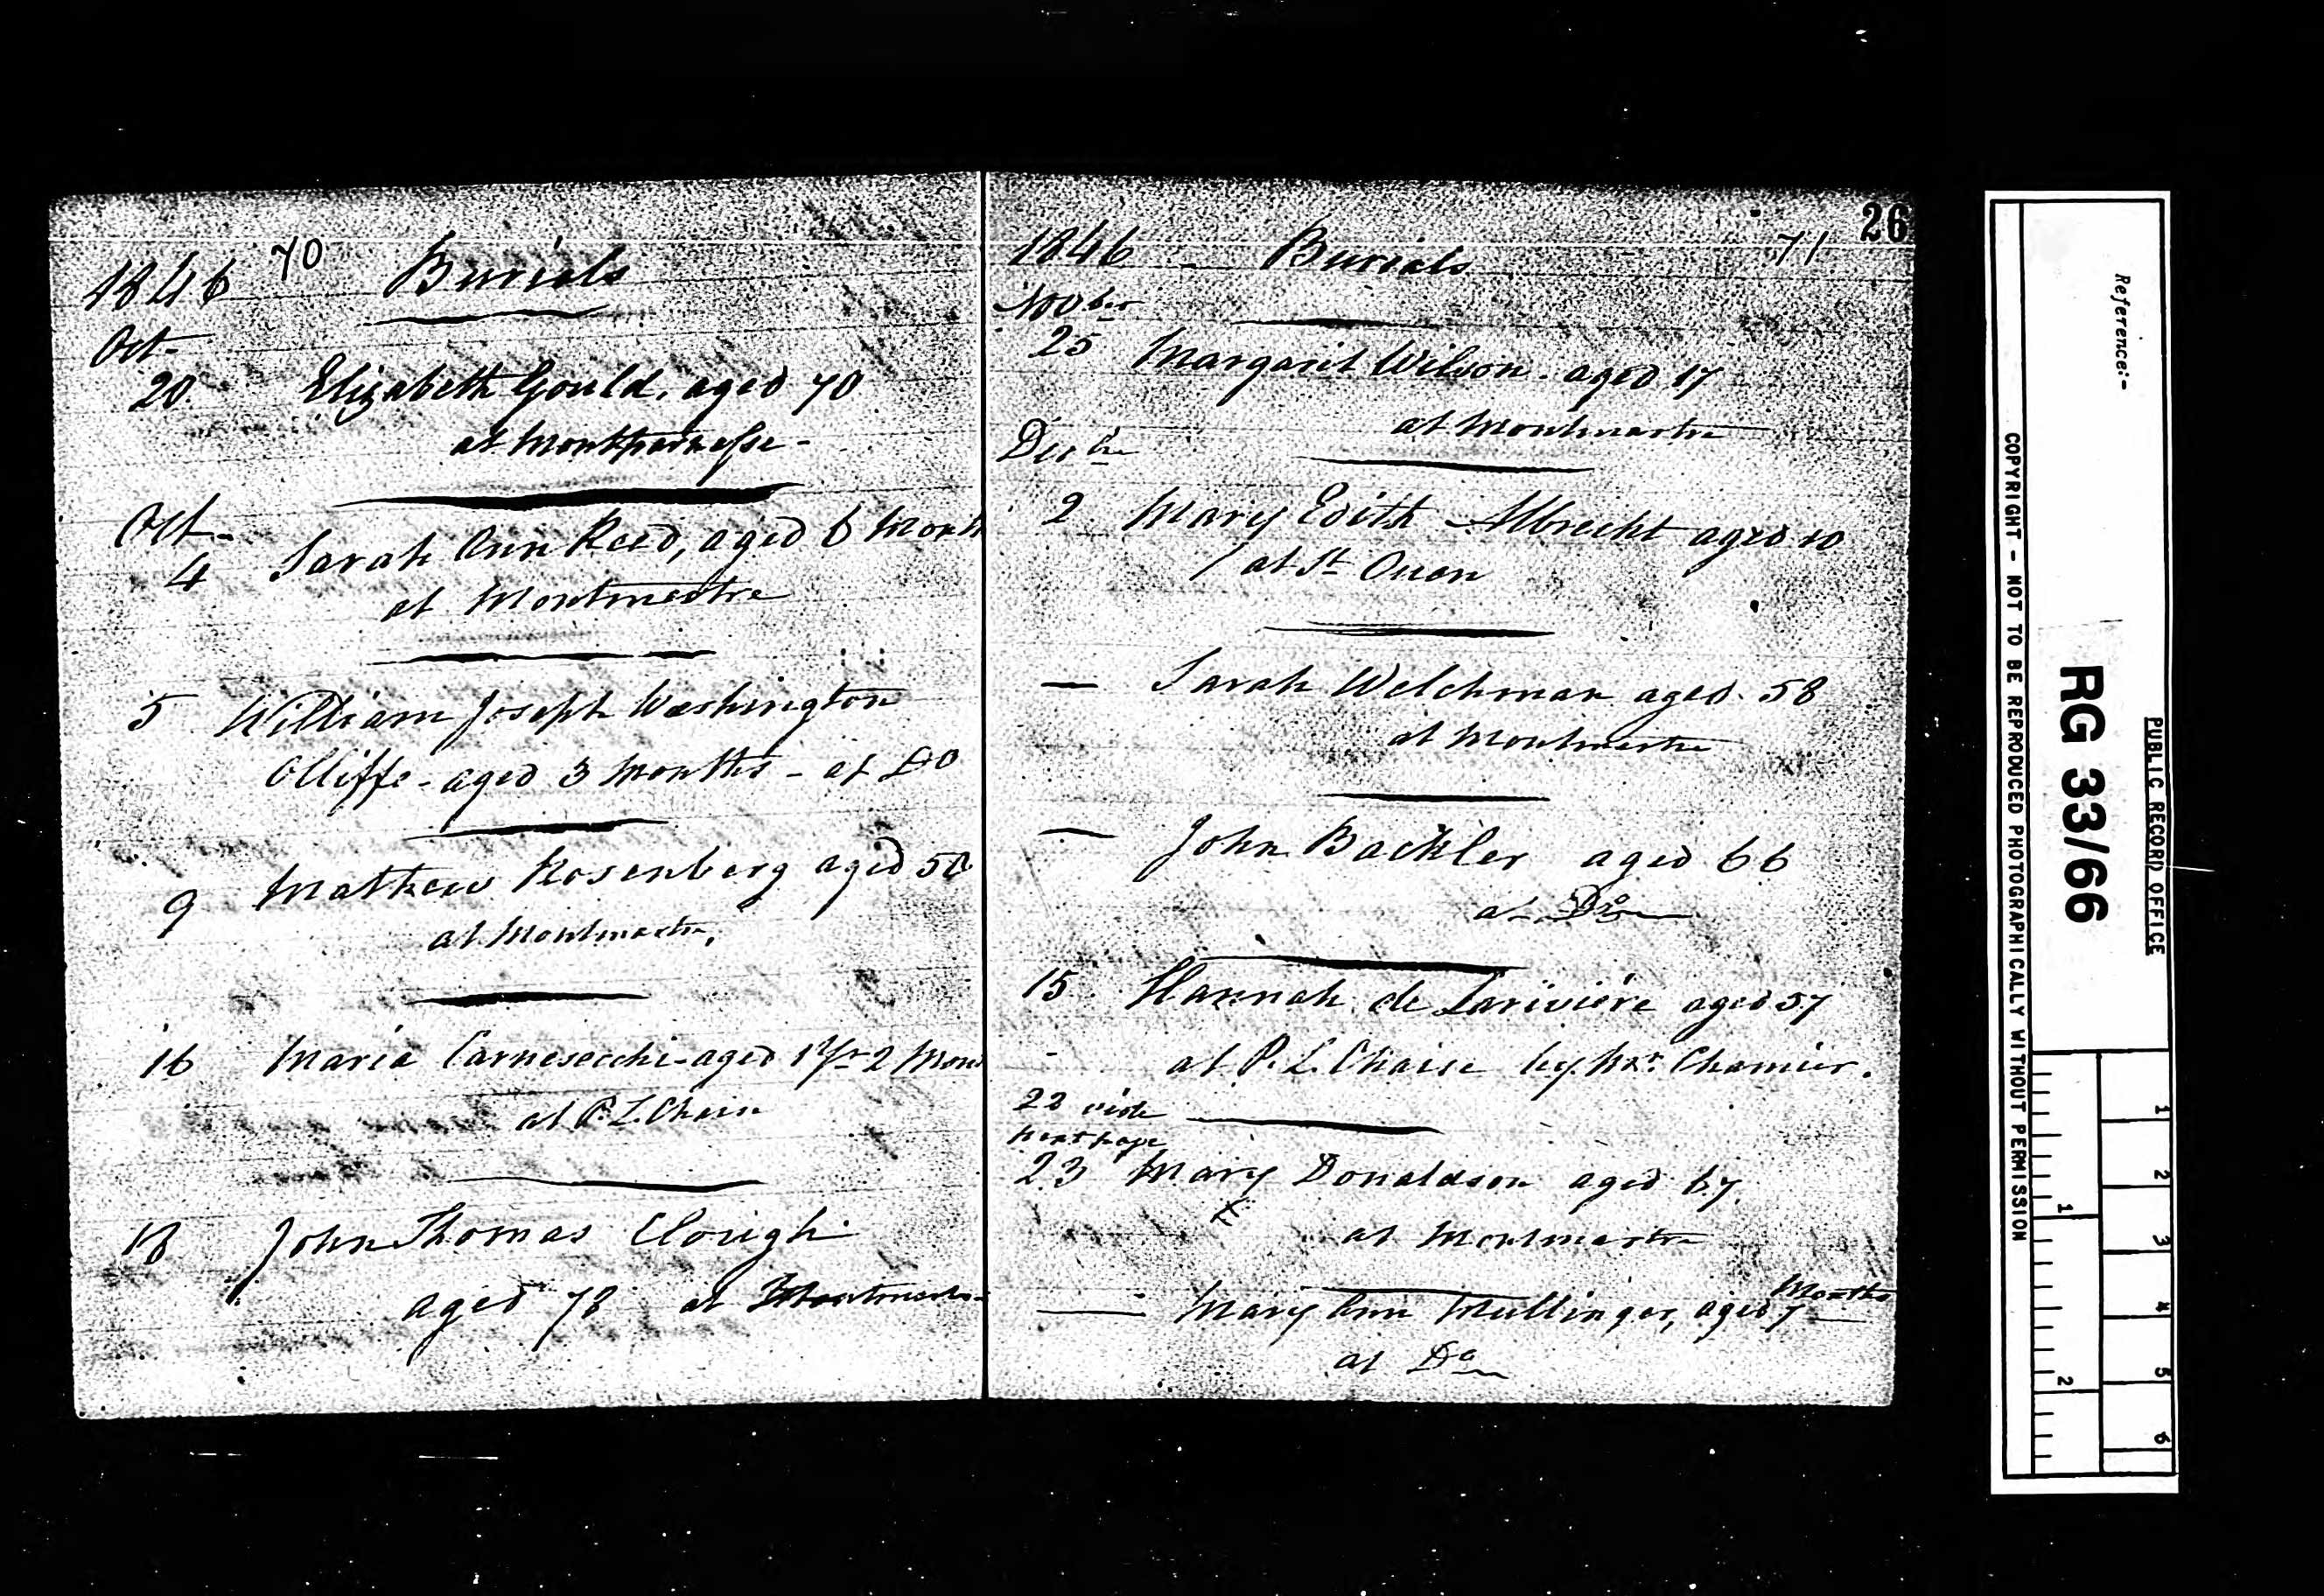 70
1846 Burials
Oct-
20. Elizabeth Gould, aged 70
at Montparnasse-
Oct-
4 Sarah Ann Reed, aged 6 Month
at Montmartre
5 William Joseph Washington
Olliffe - aged 3 Months - at Do
9 Mathew Rosenberg aged 50
at Montmartre.
16 Maria Carnesecchi - aged 1 Yr 2 Mon
at P. L. Chaise
18 John Thomas Clough
aged 78 at Montmartre
26
1846 - Burials 71
Novber
25 Margaret Wilson. aged 17
at Montmartre
Decbre
2 Mary Edith Albrecht aged 10
at St Ouen
— Sarah Welchman aged 58
at Montmartre
— John Backler aged 66
at Do
15 Hannah de Larivière aged 57
at P. L. Chaise by Mr. Chamier.
22 vide
next page
23 Mary Donaldson aged 67.
at Montmartre
— Mary Ann Mullinger, aged 7 Months
at Do
Reference:-
PUBLIC RECORD OFFICE
RG 33/66
COPYRIGHT - NOT TO BE REPRODUCED PHOTOGRAPHICALLY WITHOUT PERMISSION
1 2 3 4 5 6
1 2